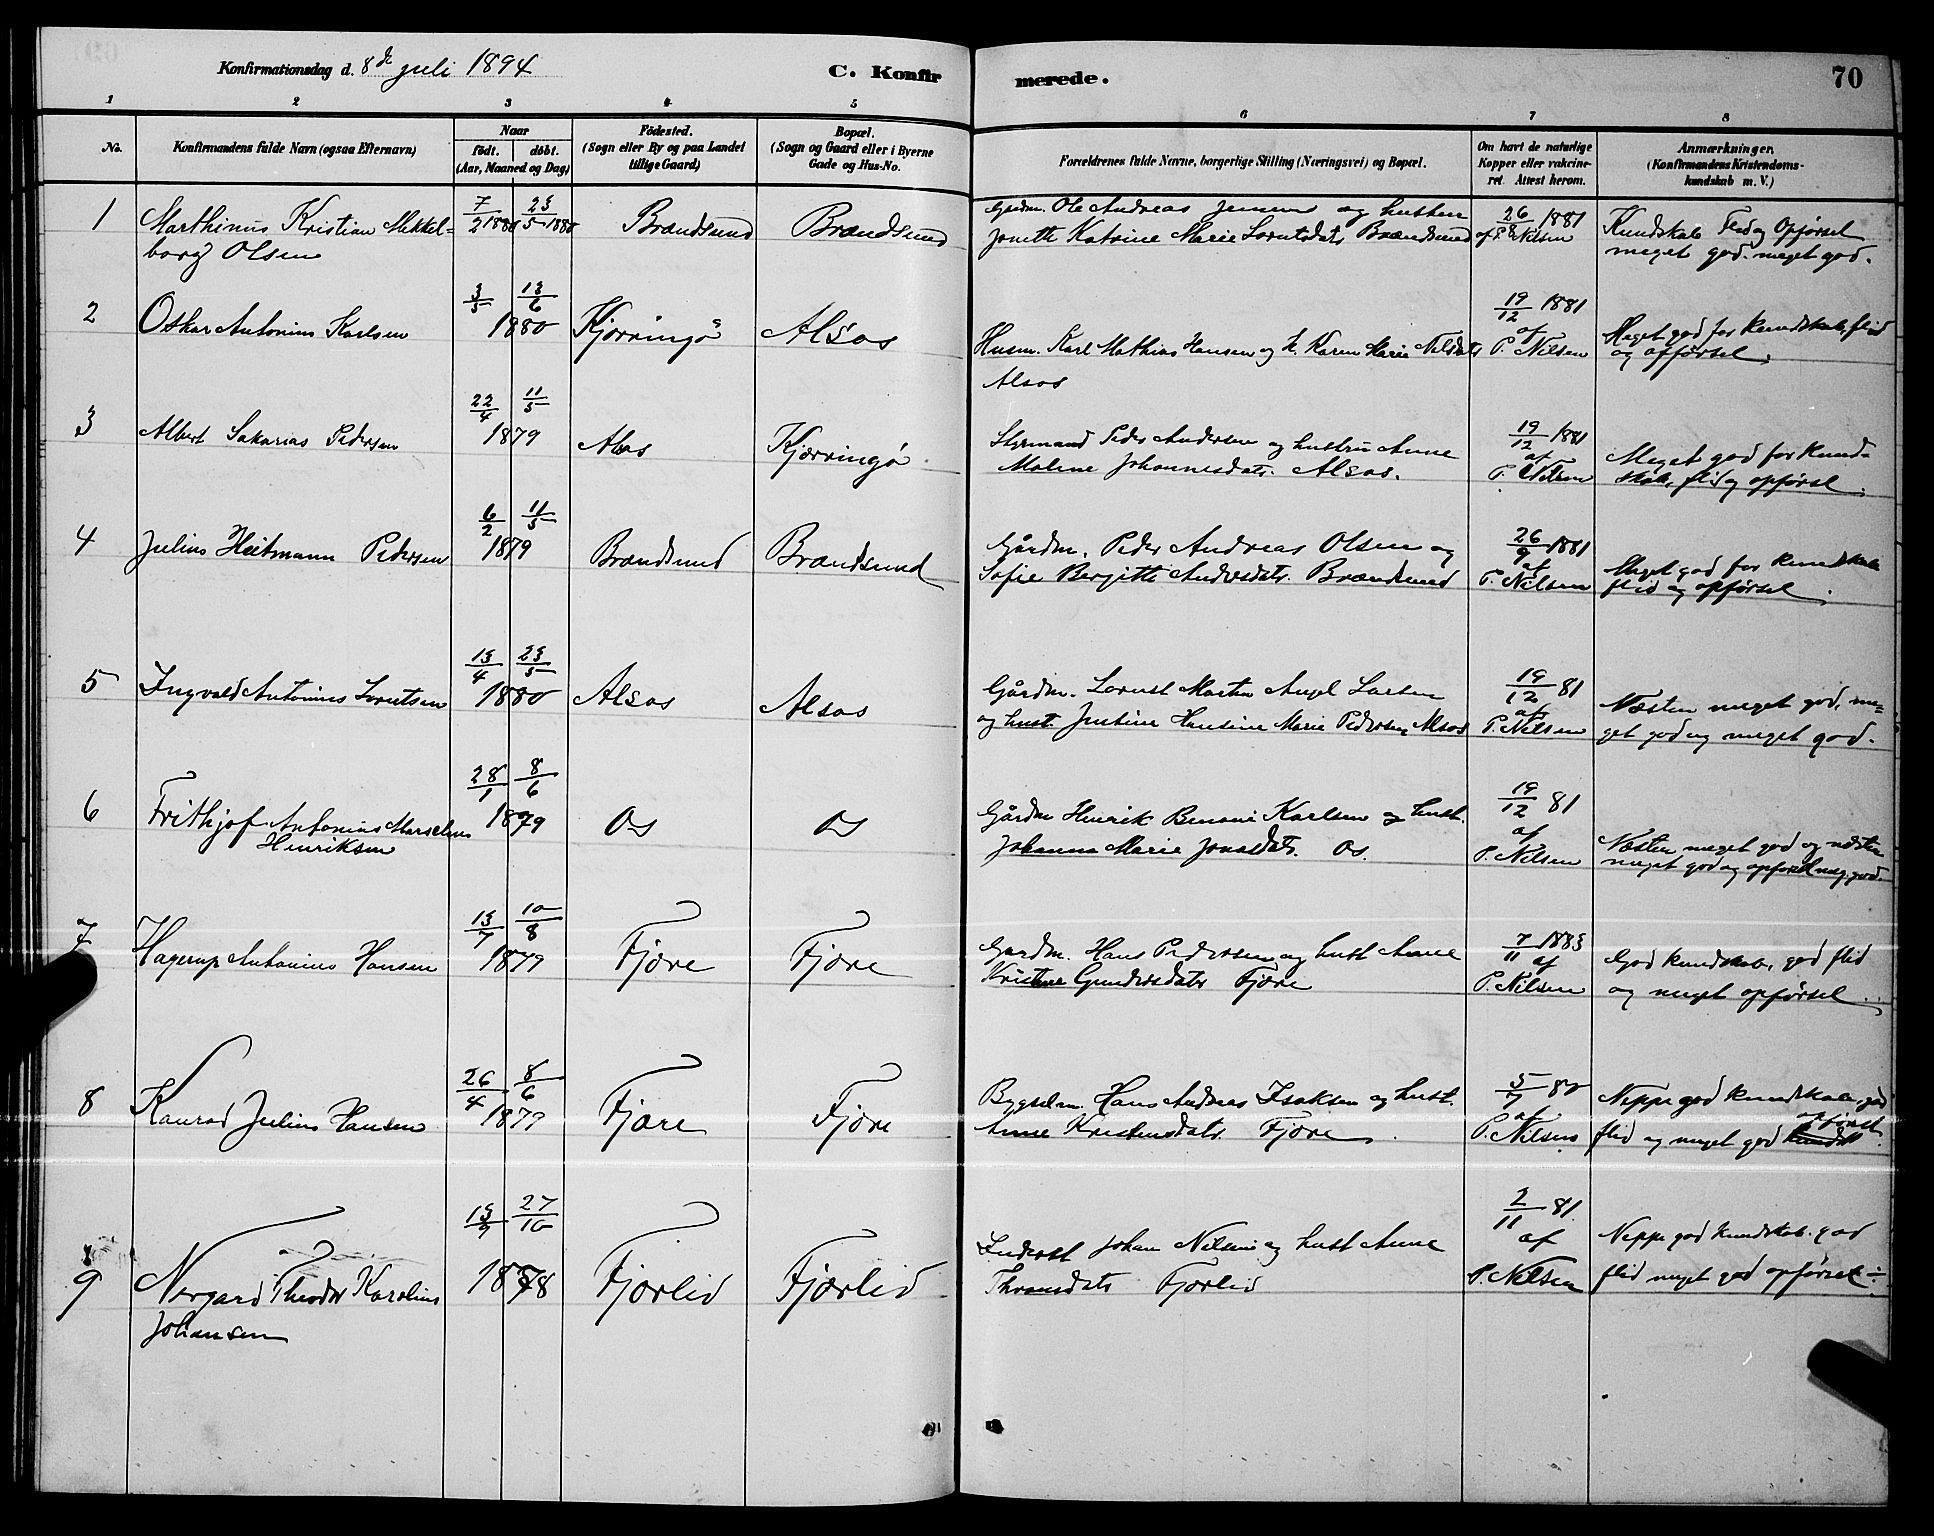 Konfirmationsdag d. 8de juli 1894
C. Konfirmerede.
70
1 2 3 4 5 6 7 8
No.
Konfirmandens fulde Navn (ogsaa Efternavn)
Naar
födt. döbt.
(Aar, Maaned og Dag)
Födested.
(Sogn eller By og paa Landet
tillige Gaard)
Bopæl.
(Sogn og Gaard eller i Byerne
Gade og Hus-No.
Forældrenes fulde Navne, borgerlige Stilling (Næringsvei) og Bopæl.
Om havt de naturlige
Kopper eller vakcine-
ret. Attest herom.
Anmærkninger.
(Konfirmandens Kristendoms-
kundskab m. V.)
1 Marthinus Kristian Mekkel= 7/2 1880 23/5 1880 Brændsund Brændsund
borg Olsen
Gårdm. Ole Andreas Jensen og hustru
Jonette Katrine Marie Lorntsdatr Brændsund
26/8 1881
af P. Nilsen
Kundskab Flid og Opførsel
meget god. meget god.
2 Oskar Antonius Karlsen 3/5 13/6 1880 Kjørringø Alsøs
Husm. Karl Mathias Hansen og h. Karen Marie Nilsdatr
Alsos
19/12 1881
af
P. Nilsen
Meget god for kundskab, flid
og opførsel.
3 Albert Sakarias Pedersen 22/4 11/5 1879 Alsos Kjørringø
Styrmand Peder Andersen og hustru Anne
Malene Johannesdatr. Alsos.
19/12 1881
af
P. Nilsen
Meget god for kund-
skab, flid og opførsel.
4 Julius Heitmann Pedersen 6/2 11/5 1879 Brændsund Brændsund
Gårdm. Peder Andreas Olsen og
Sofie Bergitte Andersdatr. Brændsund
26/9 1881
af
P. Nilsen
Meget god for kundskab
flid og opførsel.
5 Ingvald Antonius Lorntsen 13/4 23/5 1880 Alsos Alsos
Gårdm. Lornst Martin Angel Larsen
og hust. Justine Hansine Marie Pedersen Alsos
19/12 81
af
P. Nilsen
Næsten meget god, me=
get god og meget god.
6 Frithjof Antonius Marselius 28/1 8/6 1879 Os Os
Henriksen
Gårdm Henrik Benoni Karlsen og hust.
Johanna Marie Jonasdatr. Os.
19/12 81
af
P. Nilsen
Næsten meget god og næsten
meget god og opførsel meg. god.
7 Hagerup Antonius Hansen 13/7 10/8 1879 Fjøre Fjøre
Gårdm. Hans Pedersen og hust Anne
Kristine Gundersdatr Fjøre
7/11 1883
af
P. Nilsen
God kundskab, god flid
og meget opførsel.
8 Konrad Julius Hansen 26/4 8/6 1879 Fjøre Fjøre
Bygselm. Hans Andreas Isaksen og hust.
Anne Kristensdatr. Fjøre
5/7 80
af
P. Nilsen
Neppe god kundskab, god
flid og meget god opførsel.
9 Norgard Theodor Karolius 13/9 27/10 1878 Fjørlid Fjørlid
Johansen
Inderst Johan Nilsen og hust Anne
Thronsdatr Fjørlid
2/11 81
af
P. Nilsen
Neppe god kundskab. god
flid meget god opførsel÷